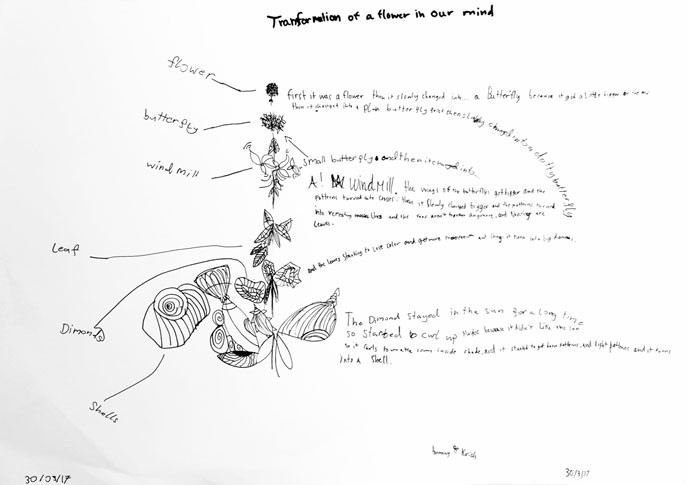 Tranformation of a flower in our mind
flower
first it was a flower then it slowly changed into... a Butterfly because it got a little bigger
then it changed into a plan butterfly first then slowly changed into a dotty butterfly
butterfly
small butterfly and then it changed into
windmill
A! WINDMILL. the wings of the butterflies get bigger and the
patterns turned into then it slowly changed bigger and the patterns turned
into repeating lines and the anymore. and are
leaves.
Leaf
and the leaves starting to lose color and get more and it turn into a big
Dimonds
The Dimond stayed in the sun for a long time
so started to curl up because it didn't like the sun
so it curls to make some inside shade. and it started to get patterns. and light patterns and it turns
into a shell.
Shells
30/03/17
30/3/17